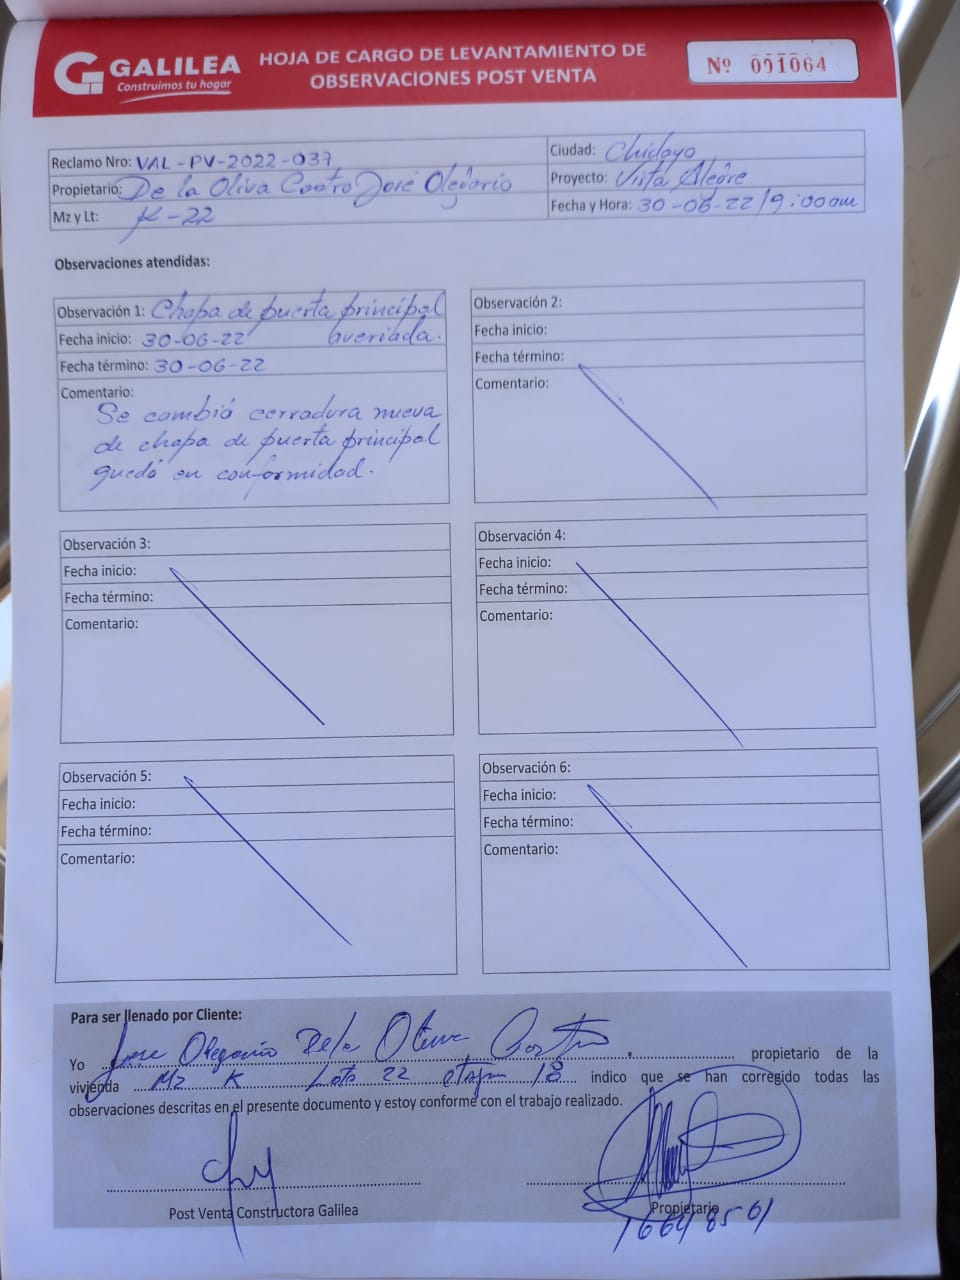 GALILEA
Construimos tu hogar
HOJA DE CARGO DE LEVANTAMIENTO DE
OBSERVACIONES POST VENTA
Nº 001064
Reclamo Nro: VAL-PV-2022-037
Propietario: De la Oliva Castro José Olegario
Mz y Lt: K-22
Ciudad: Chiclayo
Proyecto: Vista Alegre
Fecha y Hora: 30-06-22/9:00am
Observaciones atendidas:
Observación 1: Chapa de puerta principal
averiada.
Fecha inicio: 30-06-22
Fecha término: 30-06-22
Comentario:
Se cambió cerradura nueva
de chapa de puerta principal
quedó en conformidad.
Observación 2:
Fecha inicio:
Fecha término:
Comentario:
Observación 3:
Fecha inicio:
Fecha término:
Comentario:
Observación 4:
Fecha inicio:
Fecha término:
Comentario:
Observación 5:
Fecha inicio:
Fecha término:
Comentario:
Observación 6:
Fecha inicio:
Fecha término:
Comentario:
Para ser llenado por Cliente:
Yo Jose Olegario De la Oliva Castro, propietario de la
vivienda Mz K Lote 22 etapa 18 indico que se han corregido todas las
observaciones descritas en el presente documento y estoy conforme con el trabajo realizado.
Post Venta Constructora Galilea
Propietario